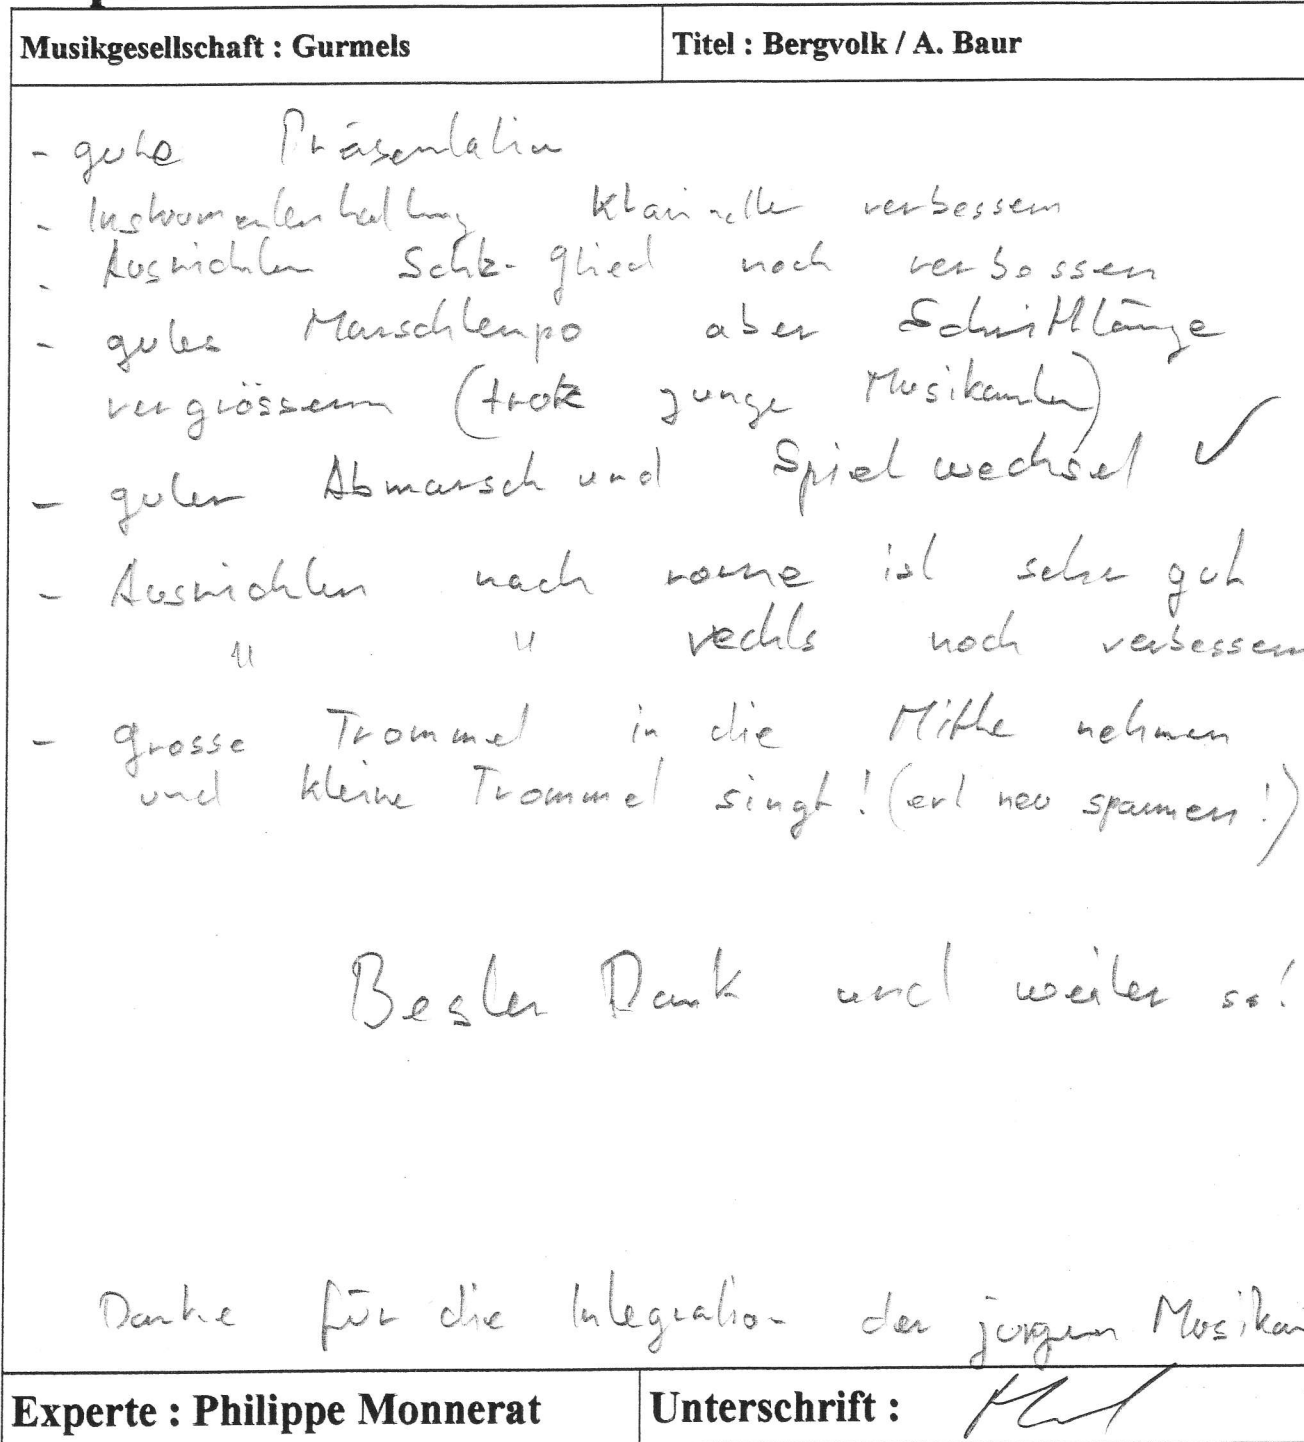 Musikgesellschaft : Gurmels
Titel : Bergvolk / A. Baur
- gute Präsentation
- Instrumentenhaltung Klarinette verbessern
- Ausrichten Schl- glied noch verbessern
- gutes Marschtempo aber Schrittlänge
vergrössern (trotz junge Musikanten)
- guter Abmarsch und Spielwechsel ✓
- Ausrichten nach vorne ist sehr gut
" " rechts noch verbessern
- grosse Trommel in die Mitte nehmen
und kleine Trommel singt! (evt neu spannen!)
Bester Dank und weiter so!
Danke für die Integration der jungen Musikan
Experte : Philippe Monnerat
Unterschrift :